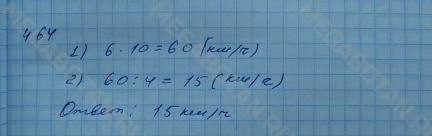 464
1) 6 · 10 = 60 (км/ч)
2) 60 : 4 = 15 (км/ч)
Ответ: 15 км/ч
MEGABOTAN.RU